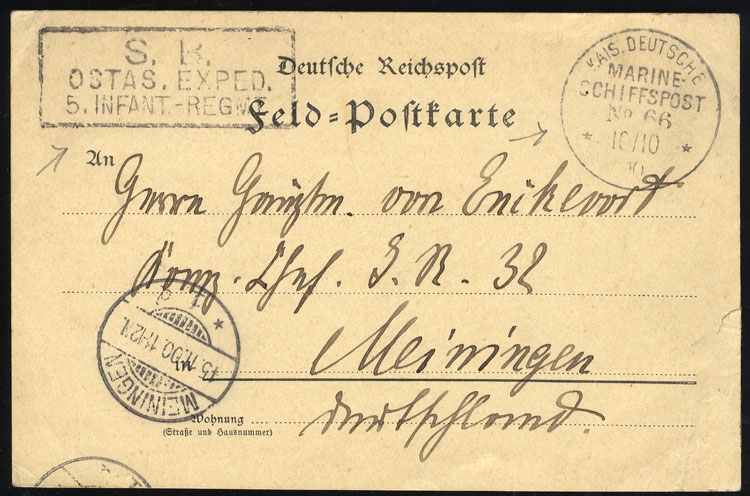 S. B.
OSTAS. EXPED.
5. INFANT.-REGMT.
Deutsche Reichspost
Feld-Postkarte
KAIS. DEUTSCHE
MARINE-
SCHIFFSPOST
No 66
* 10/10 *
00
An Herrn Hauptm. von
Komp. Chef. I. R. 32
in Meiningen
Deutschland.
Wohnung
(Straße und Hausnummer)
MEININGEN
15.11.00.11-12N.